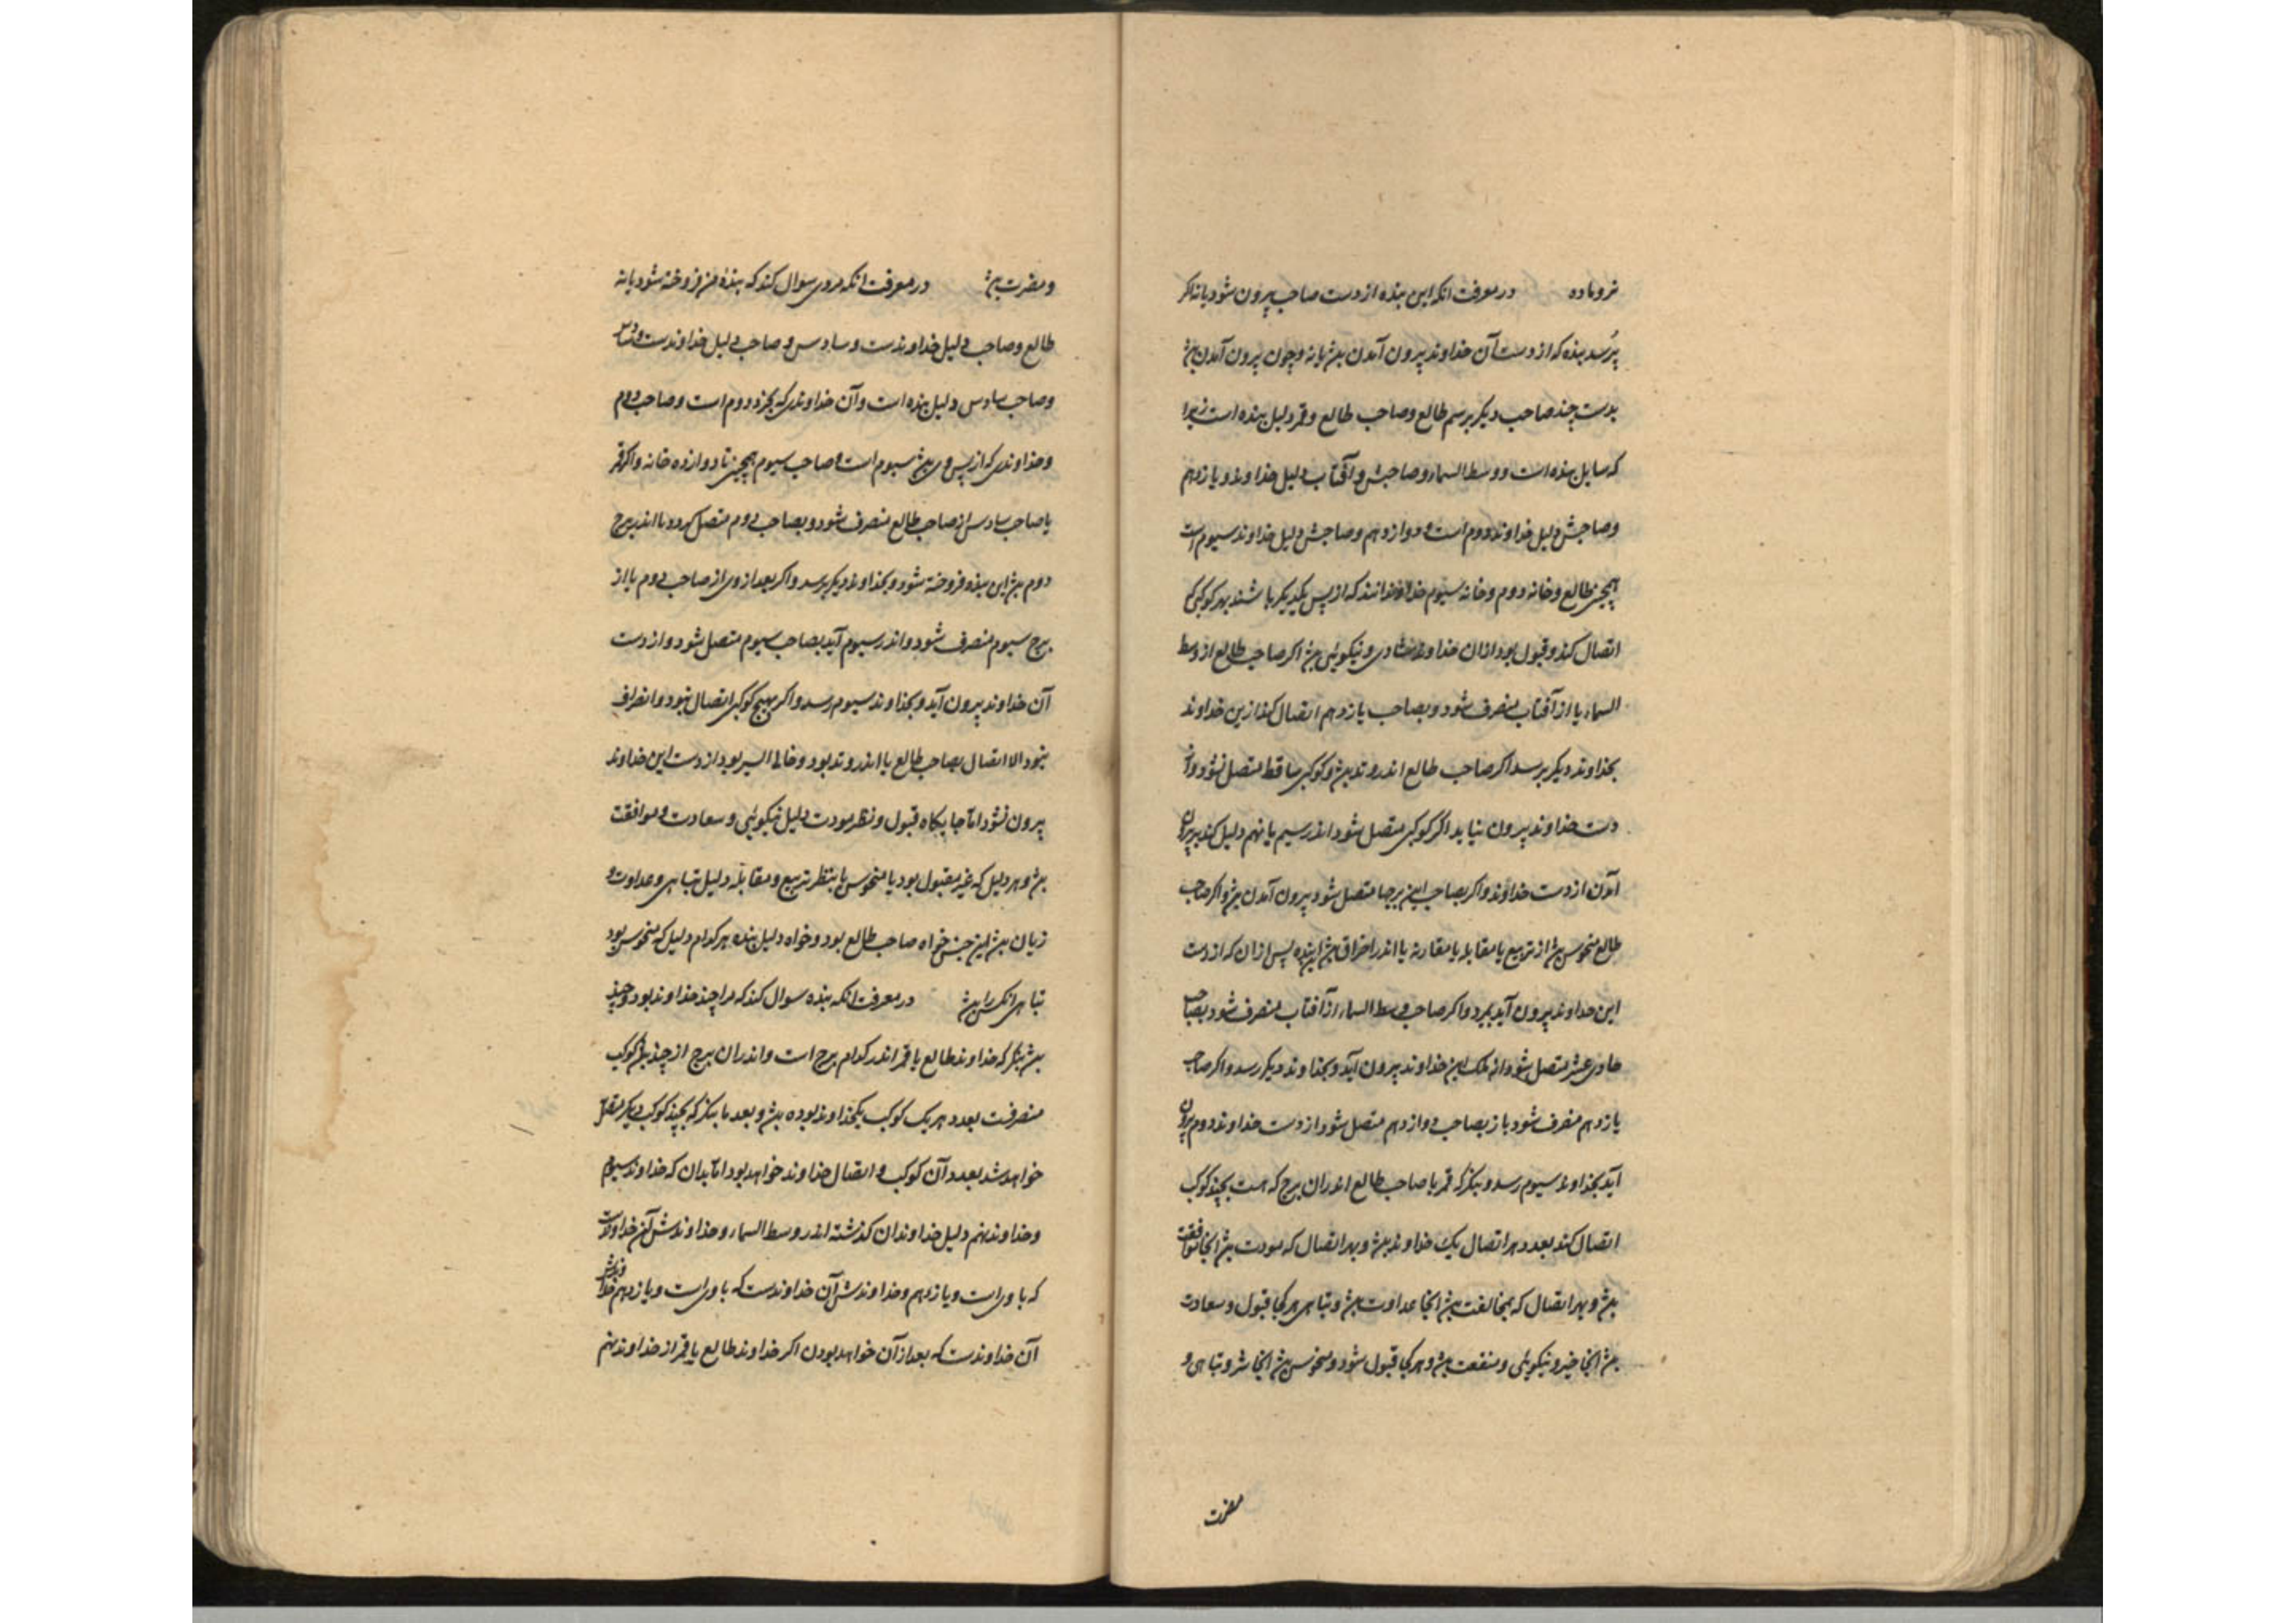 نر و ماده در معرفت انکه این بنده از دست صاحب بیرون شود یا نه اکر
پرسد بنده که از دست آن خداوند بیرون آمدن باشد یا نه و چون بیرون آمدن باشد
بدست چند صاحب دیکر برسم طالع و صاحب طالع و قمر دلیل بنده است زیرا
که سایل بنده است و وسط السماء و صاحبش و آفتاب دلیل خداوند و یازدهم
و صاحبش دلیل خداوند دوم است و دوازدهم و صاحبش دلیل خداوند سیوم است
همچنین طالع و خانه دوم و خانه سیوم خداوندانند که از پس یکدیکر باشند بهر کوکبی که
اتصال کند و قبول بود ازان خداوند شادی و نیکوئی باشد اکر صاحب طالع از وسط
السماء یا از آفتاب منصرف شود و بصاحب یازدهم اتصال کند ازین خداوند
بخداوند دیکر برسد اکر صاحب طالع اندر وتد باشد و کوکبی ساقط متصل نشود از
دست خداوند بیرون نیاید اکر کوکبی متصل شود اندر سیم یا نهم دلیل کند بر بیرون
آمدن از دست خداوند و اکر بصاحب این برجها متصل شود بیرون آمدن باشد و اکر صاحب
طالع منحوس باشد از تربیع یا مقابله یا مقارنه یا اندر احتراق باشد این بنده پس ازان که از دست
این خداوند بیرون آید بمیرد و اکر صاحب وسط السماء از آفتاب منصرف شود بصاحب
حادی عشر متصل شود از ملک این خداوند بیرون آید و بخداوند دیکر رسد و اکر صاحب
یازدهم منصرف شود باز بصاحب دوازدهم متصل شود از دست خداوند دوم بیرون
آید بخداوند سیوم رسد و بنکر که قمر یا صاحب طالع اندران برج که هست بچند کوکب
اتصال کند بعدد هر اتصال یک خداوند باشد و بهر اتصال که مودت باشد انجا موافقت
باشد و بهر اتصال که بمخالفت باشد انجا عداوت باشد و تباهی هر کجا قبول و سعادت
باشد انجا خیر و نیکوئی و منفعت باشد و هر کجا قبول شود و منحوس باشد انجا شر و تباهی و
مضرت
و مضرت باشد در معرفت انکه مردی سوال کند که بنده من فروخته شود یا نه
طالع و صاحب دلیل خداوندست و سادس و صاحب دلیل خداوندست و سادس
و صاحب سادس دلیل بنده است و آن خداوندی که بخرد دوم است و صاحب دوم
و خداوندی که از پس وی باشد سیوم است و صاحب سیوم همچنین تا دوازده خانه و اکر قمر
یا صاحب سادس از صاحب طالع منصرف شود و بصاحب دوم متصل کردد یا اندر برج
دوم باشد این بنده فروخته شود و بخداوند دیکر برسد و اکر بعد از وی از صاحب دوم یا از
برج سیوم منصرف شود و اندر سیوم آید بصاحب سیوم متصل شود و از دست
آن خداوند بیرون آید و بخداوند سیوم رسد و اکر بهیچ کوکبی اتصال نبود و انصراف
نبود الا اتصال بصاحب طالع یا اندر وتد بود و خالی السیر بود از دست این خداوند
بیرون نشود اما جایکاه قبول و نظر مودت دلیل نیکوئی و سعادت و موافقت
باشد و هر دلیل که غیر مقبول بود یا منحوس یا بنظر تربیع و مقابله دلیل تباهی و عداوت و
زیان باشد این جنس خواه صاحب طالع بود و خواه دلیل بنده هر کدام دلیل که منحوس بود
تباهی انکس را باشد در معرفت انکه بنده سوال کند که مرا چند خداوند بود و چند
باشد بنکر که خداوند طالع یا قمر اندر کدام برج است و اندران برج از چند کوکب
منصرفت بعدد هر یک کوکب یک خداوند بوده باشد و بعد ما بنکر که بچند کوکب دیکر متصل
خواهد شد بعدد آن کوکب و اتصال خداوند خواهد بود اما بدان که خداوند سیوم
و خداوند نهم دلیل خداوندان کذشته اندر وسط السماء و خداوندش آن خداوندست
که با وی است و یازدهم و خداوندش آن خداوندست که با وی است و یازدهم خداوندش
آن خداوندست که بعد از آن خواهد بودن اکر خداوند طالع یا قمر از خداوند نهم